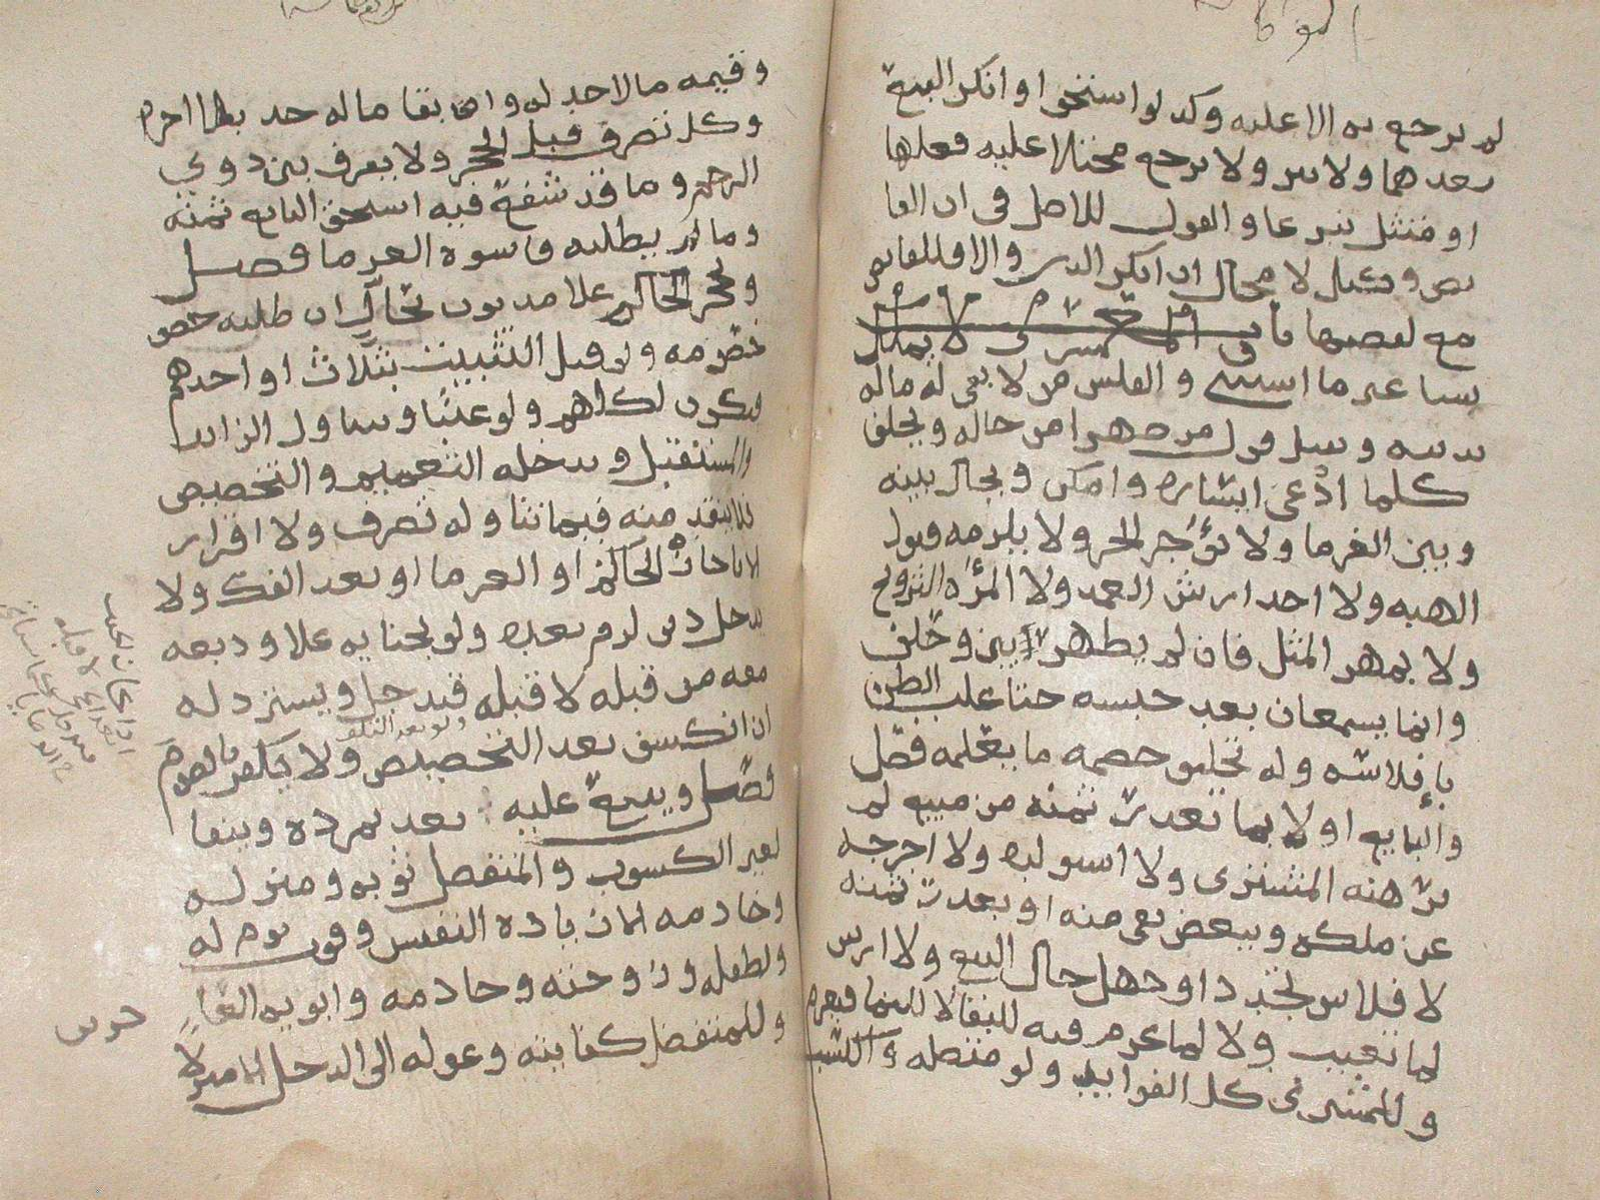 لم يرجع به الا عليه وكد لو استحق او انكر البيع
بعدهما ولا يبر ولا يرجع محتالا عليه فعلها
او متثل تبرعا والقول للاصل فى ان القا
بض وكيل لا محال ان انكر الدين والا فللقابض
مع لفضها باب
والمفلس من لا يفى له ماله
بدينه ويقبل قول من ظهرا من حاله ويحلف
كلما ادعى ايساره وامكن ويحال بينه
وبين الغرما ولا يؤجر الحر ولا يلزمه قبول
الهبه ولا اخد ارش العمد ولا المرأه التزويج
ولا بمهر المثل فان لم يظهر بين وحلف
وانما يسمعان بعد حبسه حتا غلب الظن
بإفلاسه وله تحليف خصمه ما يعلمه فصل
والبايع اولا بما تعدر ثمنه من مبيع لم
يرهنه المشترى ولا استولده ولا اخرجه
عن ملكه وببعض بقى منه او تعدر ثمنه
لا فلاس تجدد او جهل حال البيع ولا ارش
لما تعيب ولا لما غرم فيه للبقا لا للنما فيغرم
وللمشترى كل الفوايد ولو متصله والكسب
وقيمه ما لا حد له وابقا ما له حد بلا اجره
وكل تصرف قبل الحجر ولا يفرق بين ذوي
الرحم وما قد شفع فيه استحق البايع ثمنه
وما لم يطلبه فاسوة الغرما فصل
ويحجر الحاكم علا مديون بحال ان طلبه خص
خصومه ولو قبل التثبيت بثلاث او احدهم
فيكون لكلهم ولو غيبا ويتناول الزايد
والمستقبل ويدخله التعميم والتخصيص
فلا ينفد منه فيما تناوله تصرف ولا اقرار
الا باجازة الحاكم او الغرما او بعد الفك ولا
يدخل دين لزم بعده ولو بجنايه علا وديعه
معه من قبله لا قبله فيدخل ويسترد له
ولو بعد التلف
ان انكشف بعد التخصيص ولا يكفر بالصوم
فصل ويبيع عليه بعد تمرده ويبقا
لغير الكسوب والمتفضل ثوبه ومنزله
وخادمه الا زيادة النفيس وقوت يوم له
ولطفله وزوجته وخادمه وابويه العاجزين
وللمتفضل كفايته وعوله الى الدخل الا منزلا